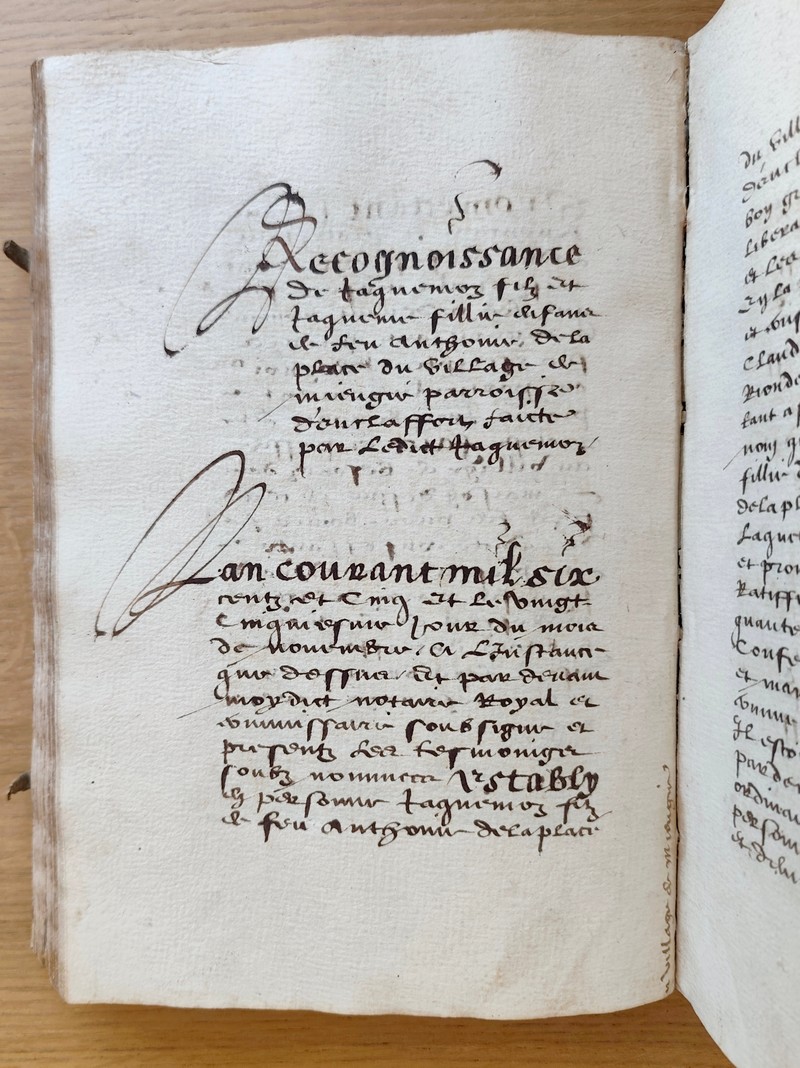 Recognoissance
de Jaquemoz filz et
Jaquemie fillie
de feu Anthonie dela
place du village de
miengie parroisse
d'enclaffon faicte
par Ledict Jaquemoz
Lan courant mil six
centz et Cinq et le vingt
Cinquiesme Jour du mois
de novembre a L'instance
que dessus Et par devant
moydict notaire Royal et
commissaire soubsigne et
presentz les tesmoings
soubz nommees Estably
en personne Jaquemoz filz
de feu Anthonie delaplace
du vill
Libera
et Les
Claud
tant a
fillie
dela pl
Jaque
Ratiffi
quante
Confe
et
par de
ordinai
person
village de miengie